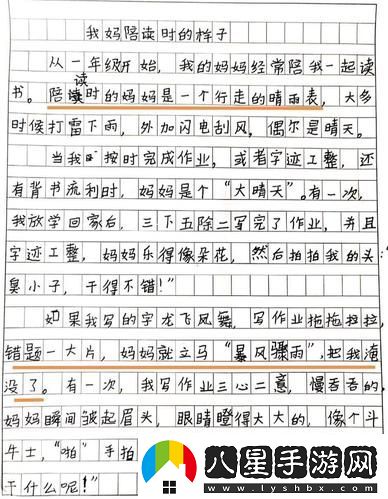 我妈陪读时的样子
从一年级开始，我的妈妈经常陪我一起读
书。陪读时的妈妈是一个行走的晴雨表，大多
读
时候打雷下雨，外加闪电刮风，偶尔是晴天。
当我时按时完成作业，或者字迹工整，还
有背书流利时，妈妈是个“大晴天”。有一次，
我放学回家后，三下五除二写完了作业，并且
字迹工整，妈妈乐得像朵花，然后拍拍我的头：“
臭小子，干得不错！”
如果我写的字龙飞凤舞，写作业拖拖拉拉，
错题一大片，妈妈就立马“暴风骤雨”，把我淹
没了。有一次，我写作业三心二意，慢吞吞的，
妈妈瞬间皱起眉头，眼睛瞪得大大的，像个斗
牛士，“啪”手拍
干什么呢！”
八星手游网
www.lyshbx.com